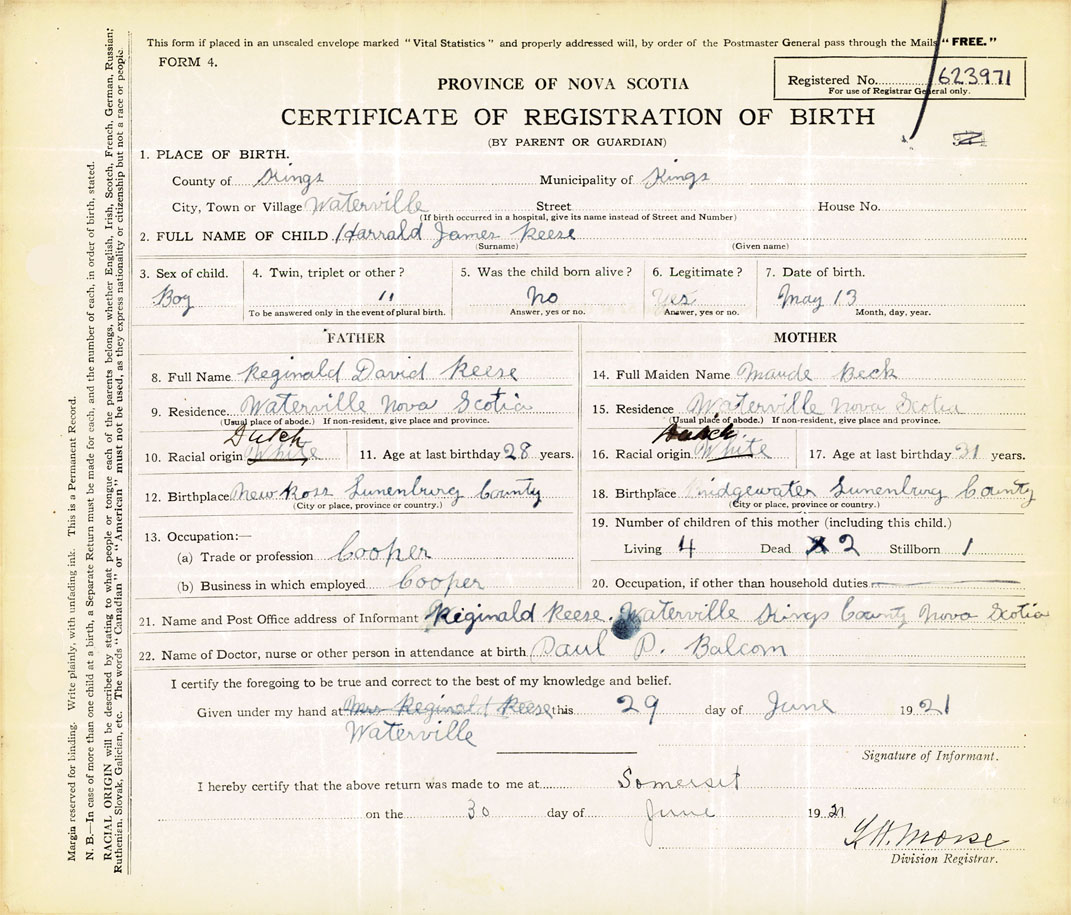 This form if placed in an unsealed envelope marked "Vital Statistics" and properly addressed will, by order of the Postmaster General pass through the Mails "FREE."
FORM 4.
Registered No. 623971
For use of Registrar General only.
PROVINCE OF NOVA SCOTIA
CERTIFICATE OF REGISTRATION OF BIRTH
(BY PARENT OR GUARDIAN)
1. PLACE OF BIRTH.
County of Kings Municipality of Kings
City, Town or Village Waterville Street House No.
(If birth occurred in a hospital, give its name instead of Street and Number)
2. FULL NAME OF CHILD Harrald James Reese
(Surname) (Given name)
3. Sex of child. 4. Twin, triplet or other? 5. Was the child born alive? 6. Legitimate? 7. Date of birth.
Boy " No Yes May 13
To be answered only in the event of plural birth. Answer, yes or no. Answer, yes or no. Month, day, year.
FATHER MOTHER
8. Full Name Reginald David Reese 14. Full Maiden Name Maude Beck
9. Residence Waterville Nova Scotia 15. Residence Waterville Nova Scotia
(Usual place of abode.) If non-resident, give place and province. (Usual place of abode.) If non-resident, give place and province.
Dutch Dutch
10. Racial origin White 11. Age at last birthday 28 years. 16. Racial origin White 17. Age at last birthday 31 years.
12. Birthplace New Ross Lunenburg County 18. Birthplace Bridgewater Lunenburg County
(City or place, province or country.) (City or place, province or country.)
13. Occupation:— 19. Number of children of this mother (including this child.)
(a) Trade or profession Cooper Living 4 Dead 2 Stillborn 1
(b) Business in which employed Cooper 20. Occupation, if other than household duties
21. Name and Post Office address of Informant Reginald Reese. Waterville Kings County Nova Scotia
22. Name of Doctor, nurse or other person in attendance at birth Paul P. Balcom
I certify the foregoing to be true and correct to the best of my knowledge and belief.
Given under my hand at Mrs Reginald Reese this 29 day of June 1921
Waterville
Signature of Informant.
I hereby certify that the above return was made to me at Somerset
on the 30 day of June 1921
Morse
Division Registrar.
Margin reserved for binding. Write plainly, with unfading ink. This is a Permanent Record.
N. B.—In case of more than one child at a birth, a Separate Return must be made for each, and the number of each, in order of birth, stated.
RACIAL ORIGIN will be described by stating to what people or tongue each of the parents belongs, whether English, Irish, Scotch, French, German, Russian,
Ruthenian, Slovak, Galician, etc. The words "Canadian" or "American" must not be used, as they express nationality or citizenship but not a race or people.